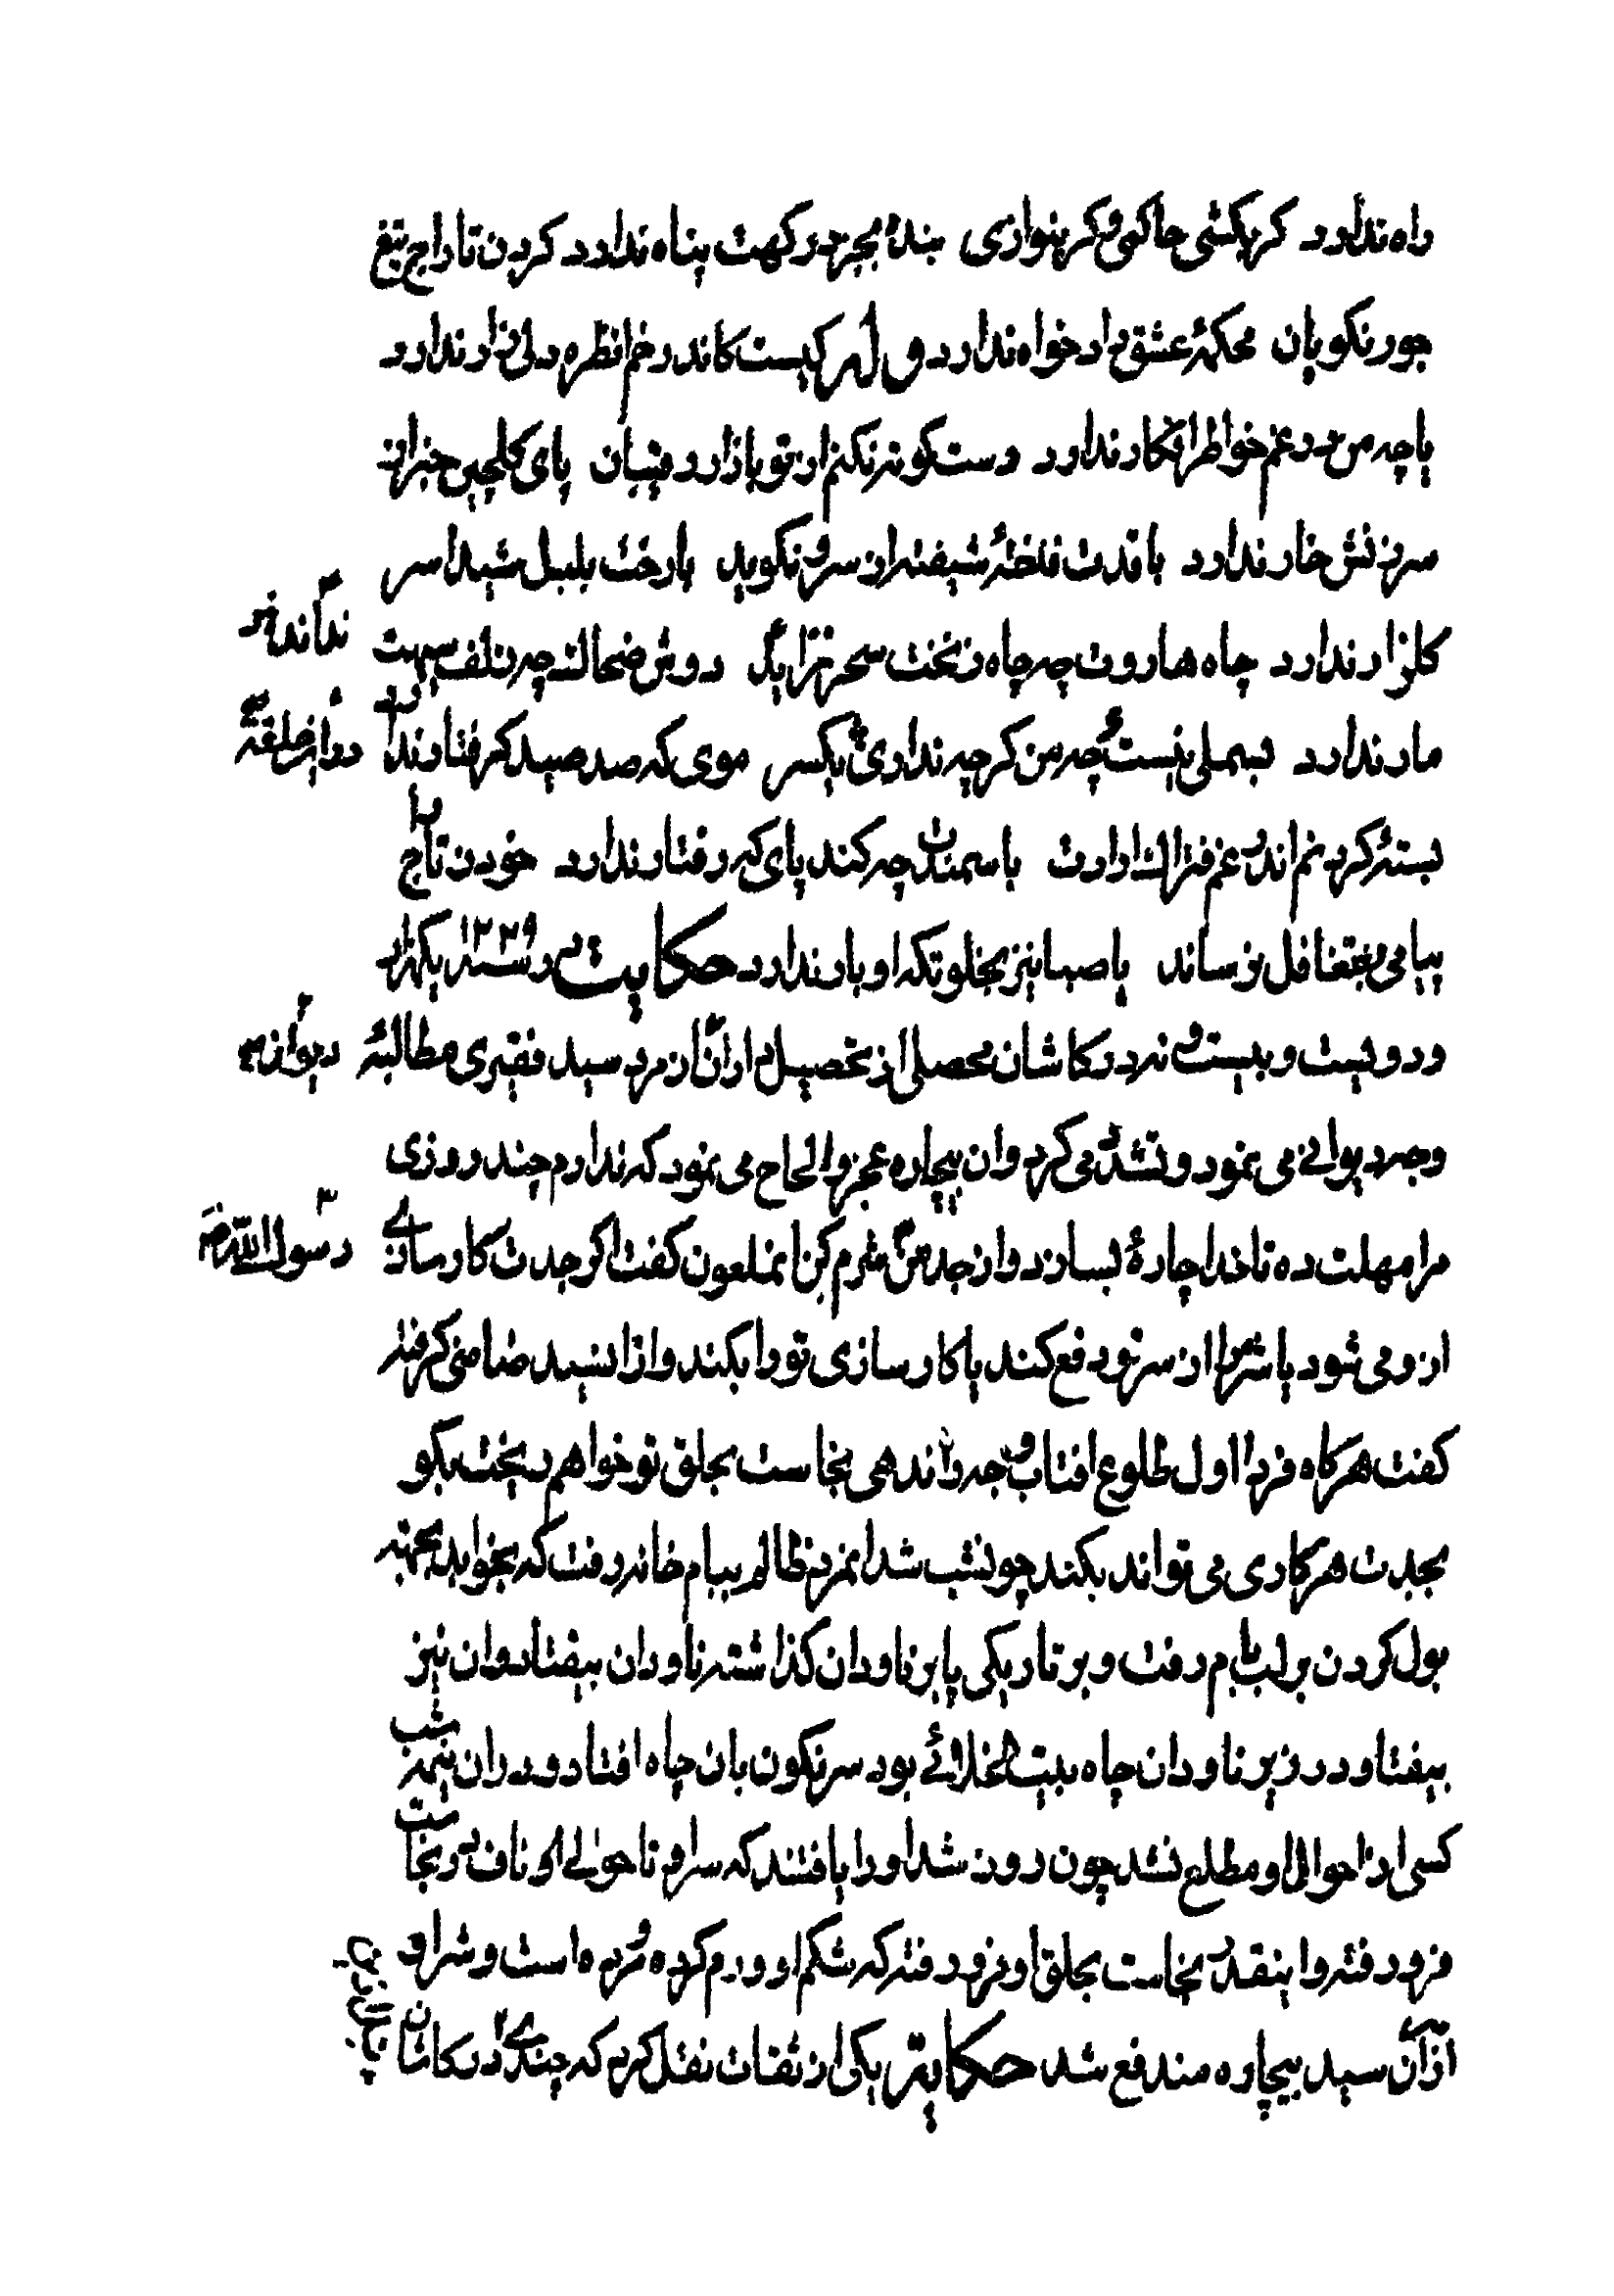 راه ندارد کر بکشی حاکمی و کر بنوازی بنده بجز درکهت پناه ندارد کردن تاراج تیغ
جور نکویان محکمهٔ عشق داد خواه ندارد و له کیست کاندر خم انطره دلی زار ندارد
یا چه من در غم خواطر افکار ندارد دست کوته نکنم از تو باز ار رقیبان پای کلچین حذر از
سرزنش خار ندارد با قدت فاخته شیفته از سرو نکوید با رخت بلبل شیدا سر
کلزار ندارد چاه هاروت چه چاه زنخت سحر نزاید دوش ضحاک چه زلف سیهت
مار ندارد بسملی نیست چه من کرچه نداری یکسر موی که صد صید کرفتار ندارد
بسته کردنم اندر غم فتراک ارادت با سمندت چه کند پای که رفتار ندارد خود نتاج
پیامی بتغافل نرساند یا صبا نیز بخلوتکه او بار ندارد حکایت در سنه ۱۲۲۹ یکهزار
و دویست و بیست و نه در کاشان محصلی از تحصیل داران از مرد سید فقیری مطالبه
وجه دیوانی می نمود و تشدد می کرد و ان بیچاره عجز و الحاح می نمود که ندارم چند روزی
مرا مهلت ده تا خدا چارهٔ بسازد و از جد من شرم کن انملعون کفت اکر جدت کارسازی
از و می شود یا شر مرا از سر تو دفع کند یا کارسازی تو را بکند و از انسید ضامنی کرفته
کفت هرکاه فردا اول طلوع افتاب وجه را ندهی نجاست بحلق تو خواهم ریخت بکو
بجدت هر کاری می تواند بکند چونشب شد انمرد ظالم ببام خانه رفت که بخوابد بجهته
بول کردن بر لب بام رفت و بر تاریکی پا بر ناودان کذاشته ناودان بیفتاد و ان نیز
بیفتاد و در زیر ناودان چاه بیت الخلائی بود سرنکون بان چاه افتاد و در ان نیمه شب
کسی از احوال او مطلع نشد چون روز شد او را یافتند که سر او تا حوالی ناف در نجاست
فرو رفته و اینقدر نجاست بحلق او فرو رفته که شکم او ورم کرده و مرده است و شر او
از ان سید بیچاره مندفع شد حکایة یکی از ثقات نقل کرد که چندی در کاشان
رسول الله